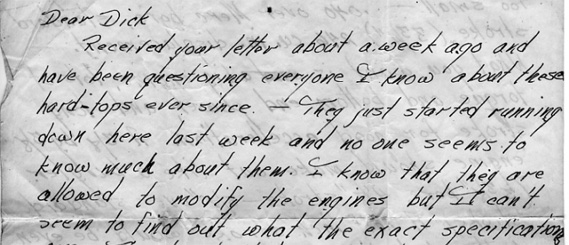 Dear Dick
Received your letter about a week ago and
have been questioning everyone I know about these
hard-tops ever since. — They just started running
down here last week and no one seems to
know much about them. I know that they are
allowed to modify the engines but I can't
seem to find out what the exact specifications